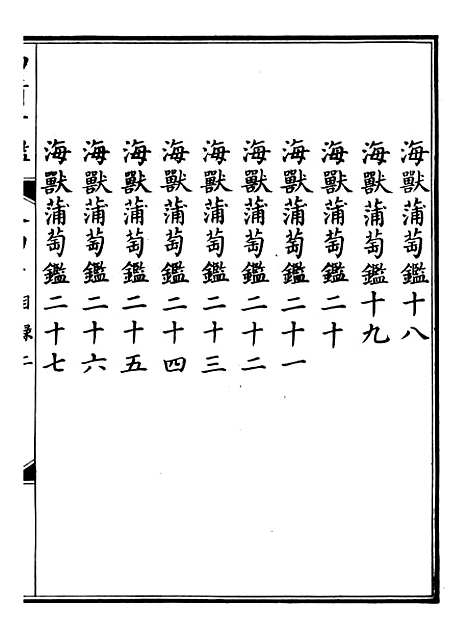 海獸蒲萄鑑十八
海獸蒲萄鑑十九
海獸蒲萄鑑二十
海獸蒲萄鑑二十一
海獸蒲萄鑑二十二
海獸蒲萄鑑二十三
海獸蒲萄鑑二十四
海獸蒲萄鑑二十五
海獸蒲萄鑑二十六
海獸蒲萄鑑二十七
目錄